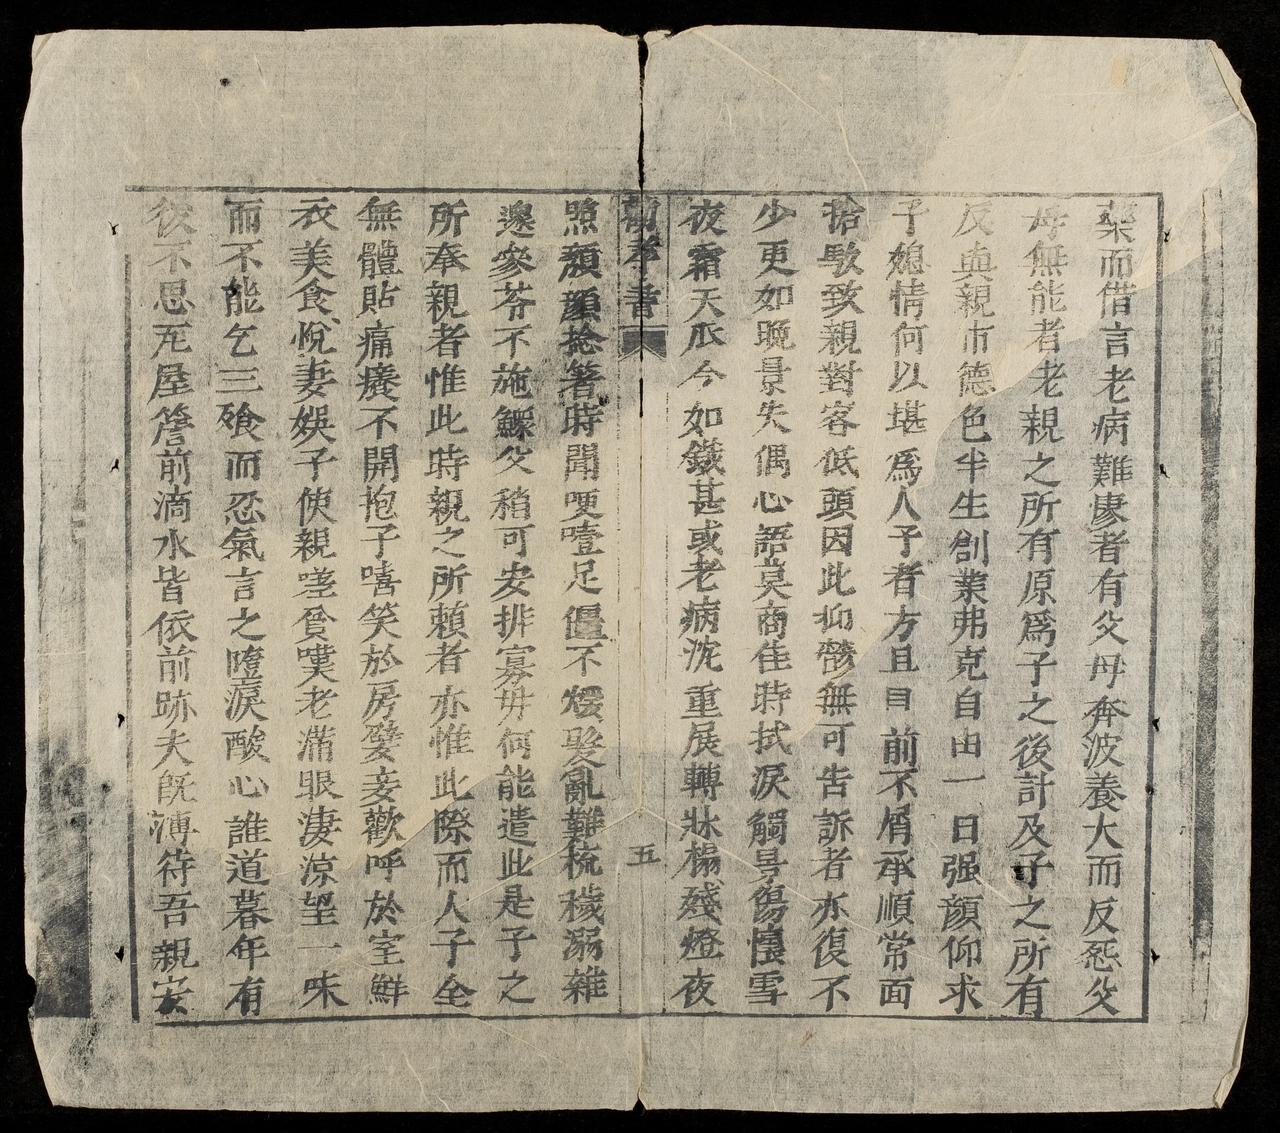 藥而借言老病難慮者有父母奔波養大而反怨父
母無能者老親之所有原爲子之後計及子之所有
反與親市德色半生創業弗克自由一日强顔仰求
子媳情何以堪爲人子者方且目前不屑承順常面
搶駁致親對客低頭因此抑鬱無可告訴者亦復不
少更如晚景失偶心語莫商佳時拭淚觸景傷懷雪
夜霜天瓜今如鐵甚或老病沈重展轉牀榻殘燈夜
勸孝書
五
照頹顔捻箸時聞哽噎足僵不煖髮亂難梳穢溺雜
遝參苓不施鰥父稍可安排寡母何能遣此是子之
所奉親者惟此時親之所賴者亦惟此際而人子全
無體貼痛癢不開抱子嘻笑於房嬖妾歡呼於室鮮
衣美食悅妻娛子使親嗟貧嘆老滿眼淒涼望一味
而不能乞三飱而忍氣言之墮淚酸心誰道暮年有
彼不思瓦屋簷前滴水皆依前跡夫旣薄待吾親安